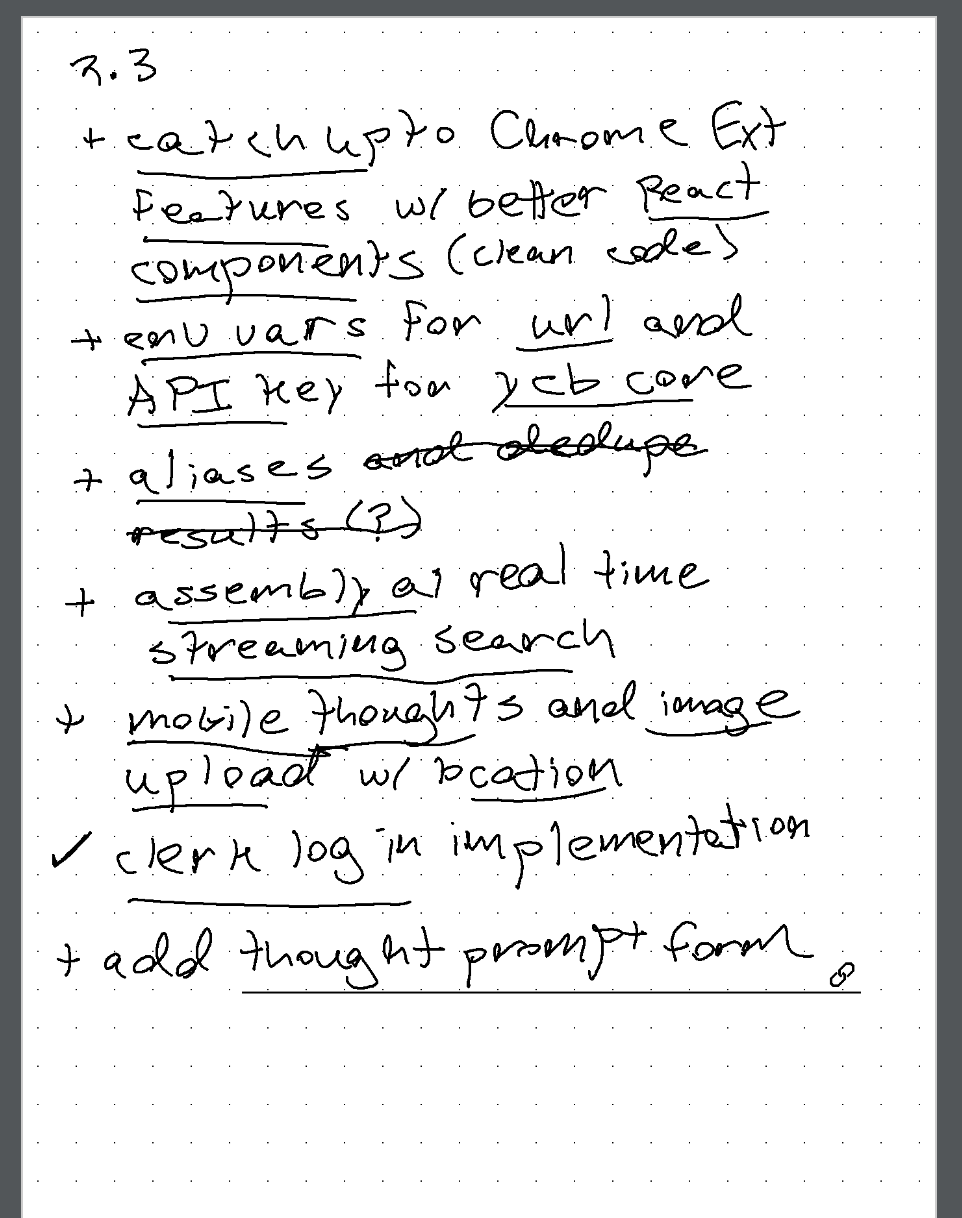 2.3
+ catch up to Chrome Ext
Features w/ better React
components (clean code)
+ env vars for url and
API key for ycb core
+ aliases and dedupe
results (?)
+ assembly ai real time
streaming search
+ mobile thoughts and image
upload w/ location
✓ clerk log in implementation
+ add thought prompt form